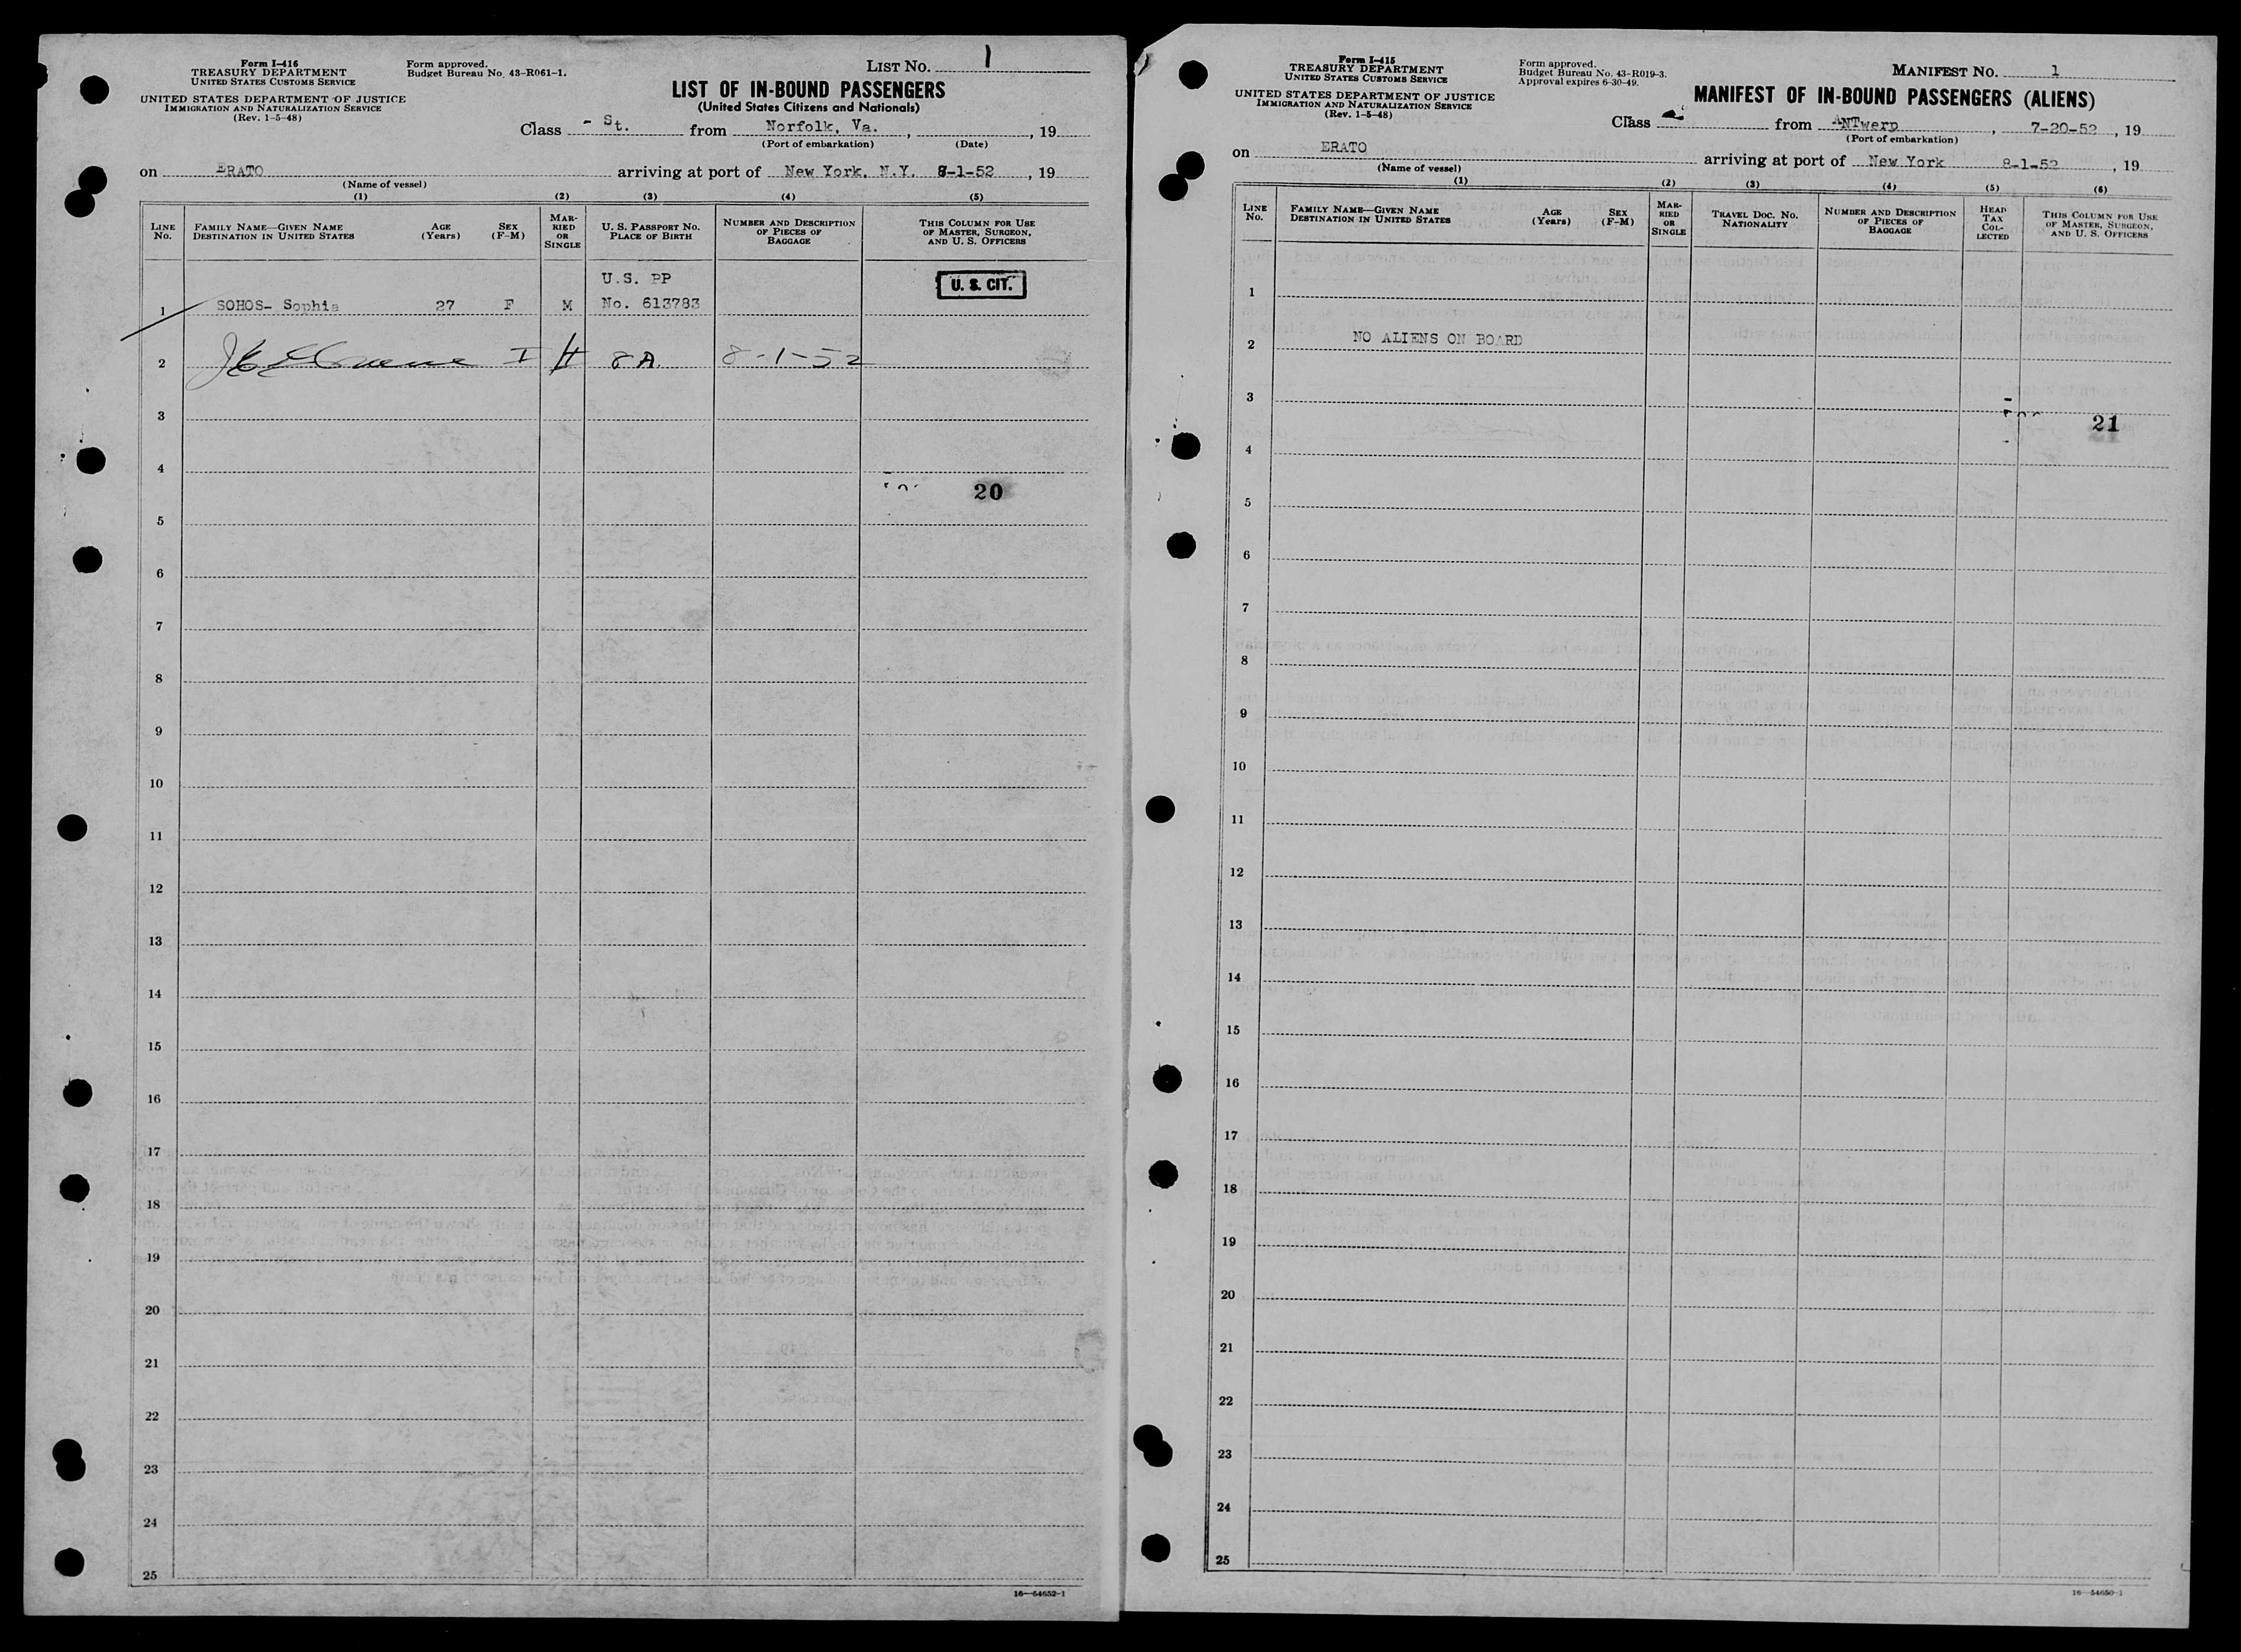 Form I-416
TREASURY DEPARTMENT
UNITED STATES CUSTOMS SERVICE
UNITED STATES DEPARTMENT OF JUSTICE
IMMIGRATION AND NATURALIZATION SERVICE
(Rev. 1-5-48)
Form approved.
Budget Bureau No. 43-R061-1.
LIST NO. 1
LIST OF IN-BOUND PASSENGERS
(United States Citizens and Nationals)
Class - St. from Norfolk, Va. , , 19
(Port of embarkation) (Date)
on ERATO arriving at port of New York, N.Y. 8-1-52 , 19
(Name of vessel)
(1) (2) (3) (4) (5)
LINE No. FAMILY NAME—GIVEN NAME DESTINATION IN UNITED STATES AGE (Years) SEX (F-M) MARRIED OR SINGLE U. S. PASSPORT NO. PLACE OF BIRTH NUMBER AND DESCRIPTION OF PIECES OF BAGGAGE THIS COLUMN FOR USE OF MASTER, SURGEON, AND U. S. OFFICERS
U.S. PP U. S. CIT.
1 SOHOS- Sophia 27 F M No. 613783
2 I H 8A. 8-1-52
3
4
20
5
6
7
8
9
10
11
12
13
14
15
16
17
18
19
20
21
22
23
24
25
16—54652-1
Form I-415
TREASURY DEPARTMENT
UNITED STATES CUSTOMS SERVICE
UNITED STATES DEPARTMENT OF JUSTICE
IMMIGRATION AND NATURALIZATION SERVICE
(Rev. 1-5-48)
Form approved.
Budget Bureau No. 43-R019-3.
Approval expires 6-30-49.
MANIFEST NO. 1
MANIFEST OF IN-BOUND PASSENGERS (ALIENS)
Class from ANTwerp , 7-20-52 , 19
(Port of embarkation)
on ERATO arriving at port of New York 8-1-52 , 19
(Name of vessel)
(1) (2) (3) (4) (5) (6)
LINE No. FAMILY NAME—GIVEN NAME DESTINATION IN UNITED STATES AGE (Years) SEX (F-M) MARRIED OR SINGLE TRAVEL DOC. NO. NATIONALITY NUMBER AND DESCRIPTION OF PIECES OF BAGGAGE HEAD TAX COLLECTED THIS COLUMN FOR USE OF MASTER, SURGEON, AND U. S. OFFICERS
1
2 NO ALIENS ON BOARD
3
21
4
5
6
7
8
9
10
11
12
13
14
15
16
17
18
19
20
21
22
23
24
25
16—54650-1